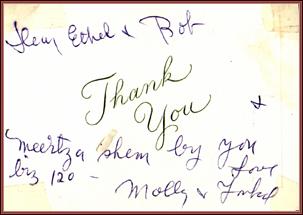 Dear Ethel & Bob
Thank
You
&
"meertza shem by you
biz 120 -
Love
Molly &